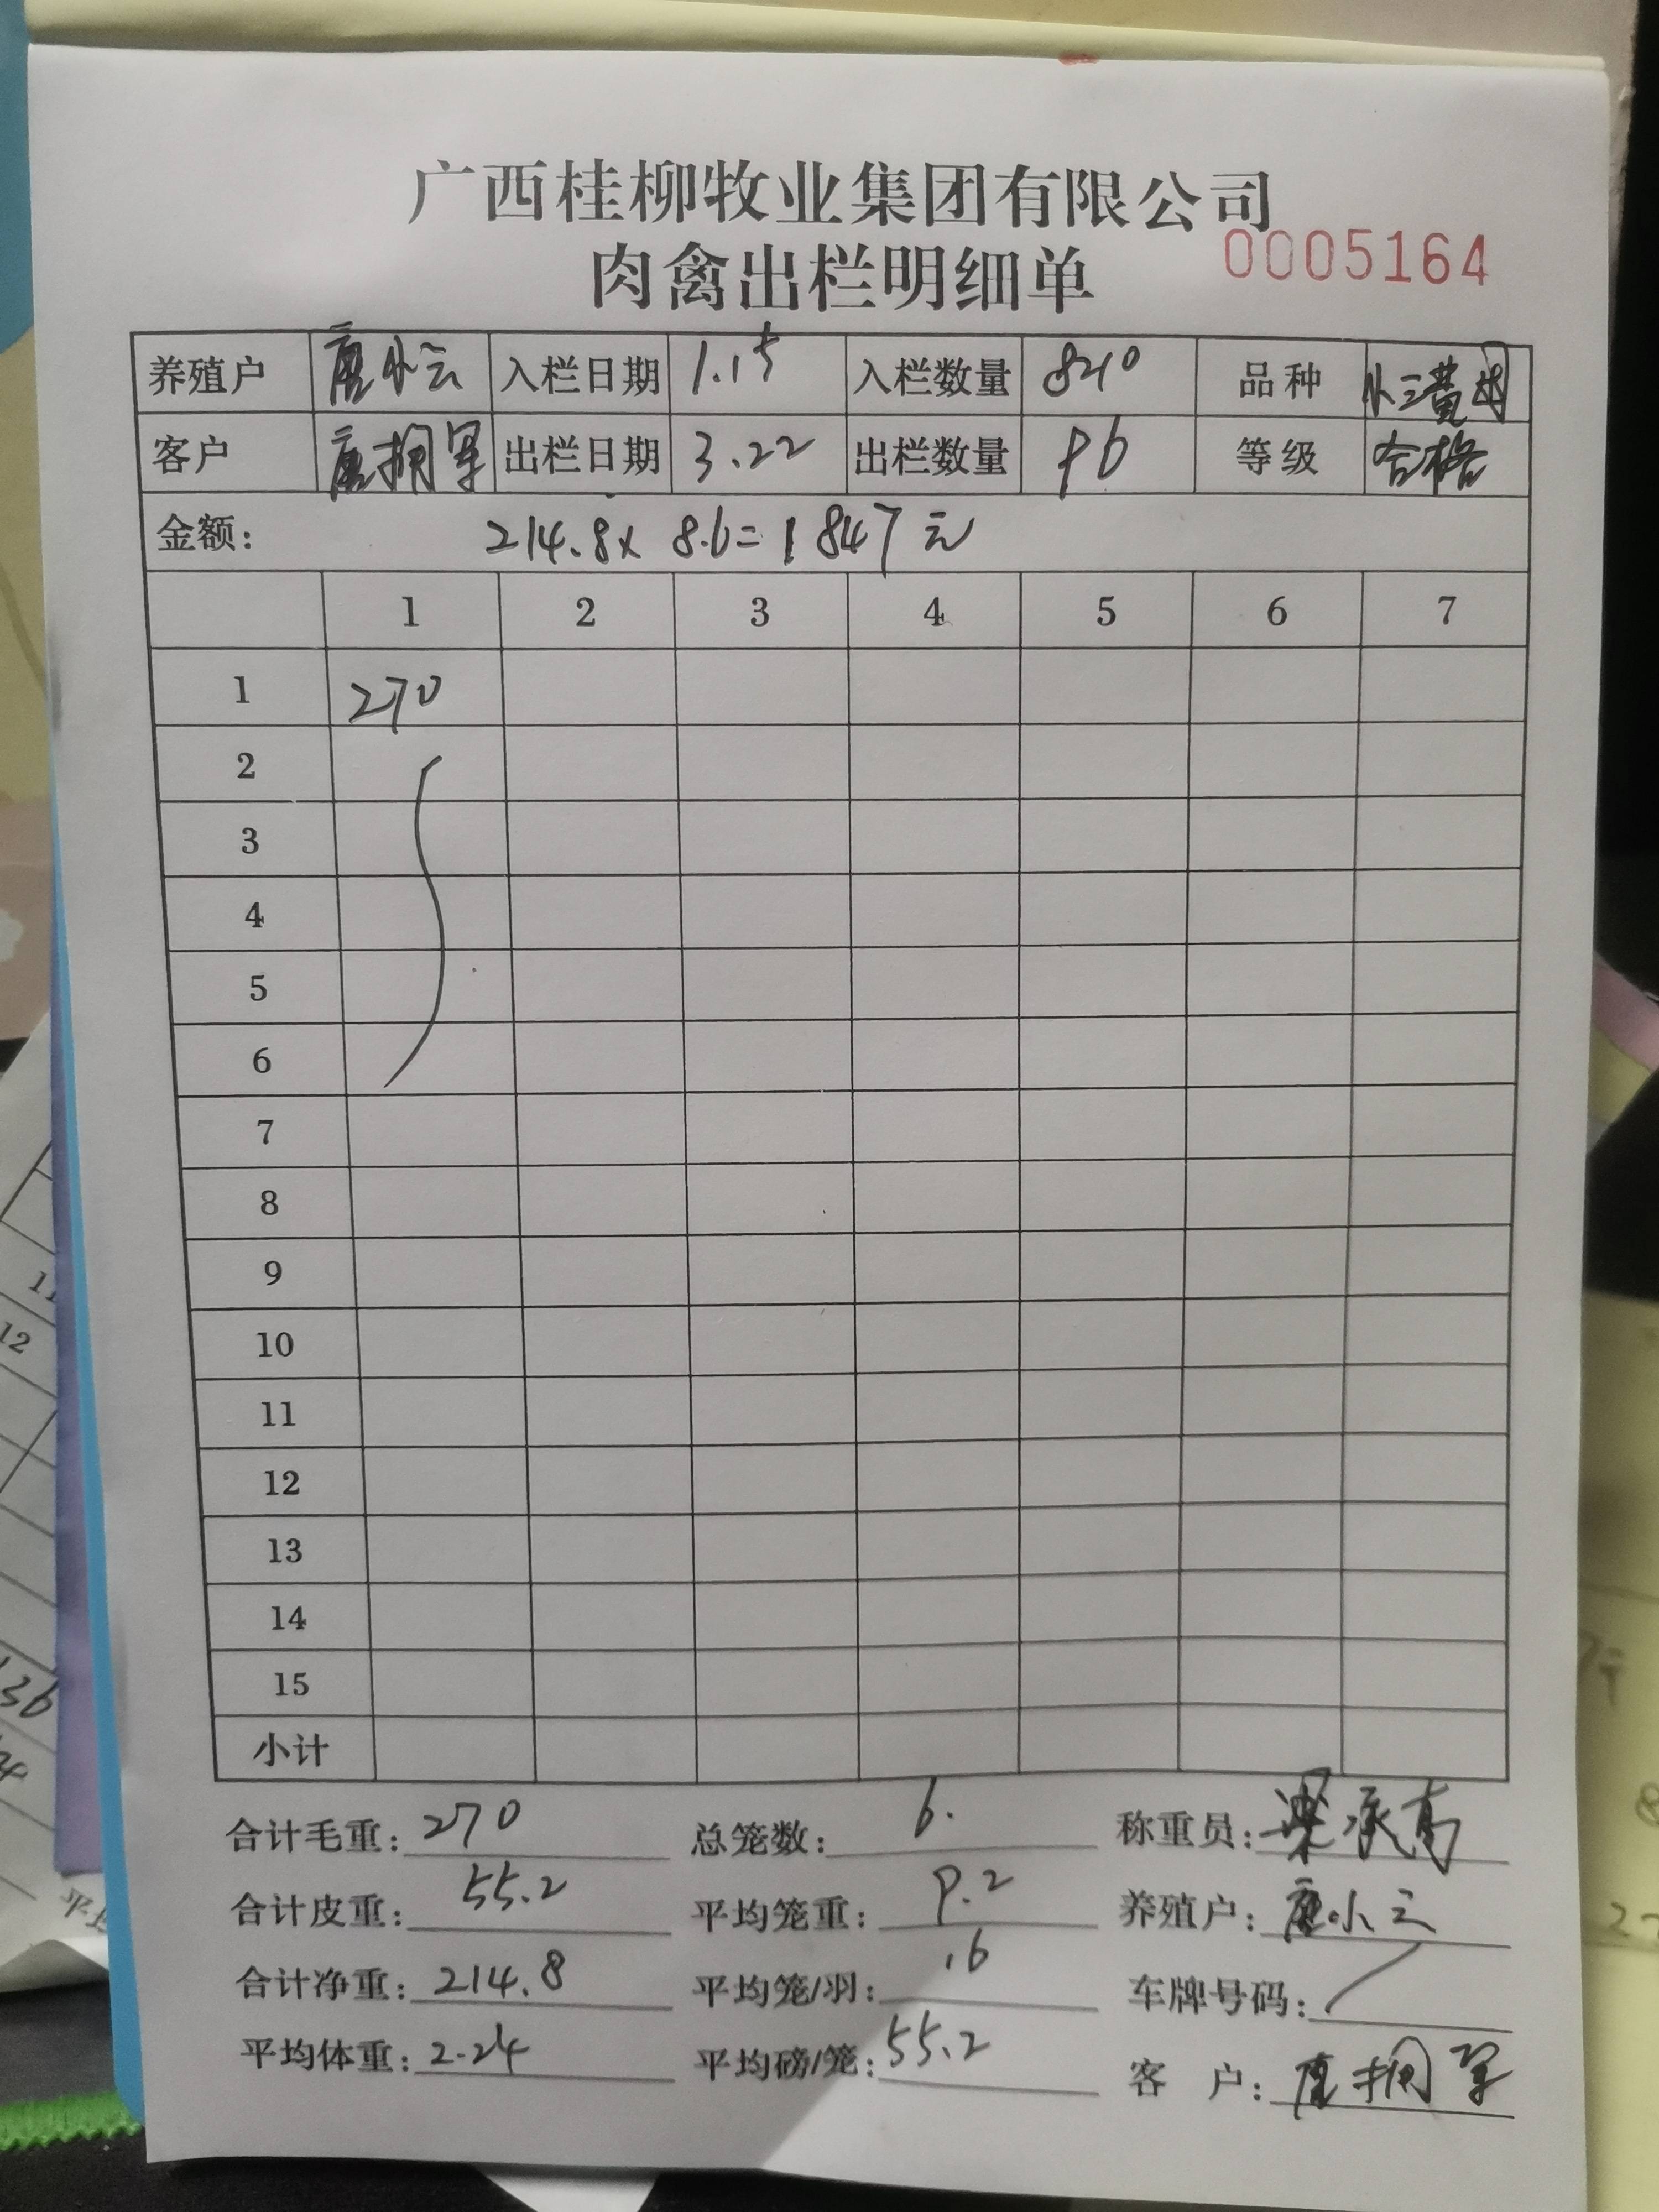 广西桂柳牧业集团有限公司
肉禽出栏明细单 0005164
养殖户 唐小云 入栏日期 1.15 入栏数量 8210 品种 小三黄
客户 唐拥军 出栏日期 3.22 出栏数量 96 等级 合格
金额: 214.8x 8.6=1847元
1 2 3 4 5 6 7
1 270
2
3
4
5
6
7
8
9
10
11
12
13
14
15
小计
合计毛重: 270 总笼数: 6. 称重员: 梁承高
合计皮重: 55.2 平均笼重: 9.2 养殖户: 唐小云
合计净重: 214.8 平均笼/羽: 16 车牌号码: /
平均体重: 2.24 平均磅/笼: 55.2 客 户: 唐拥军
11
12
136
平均